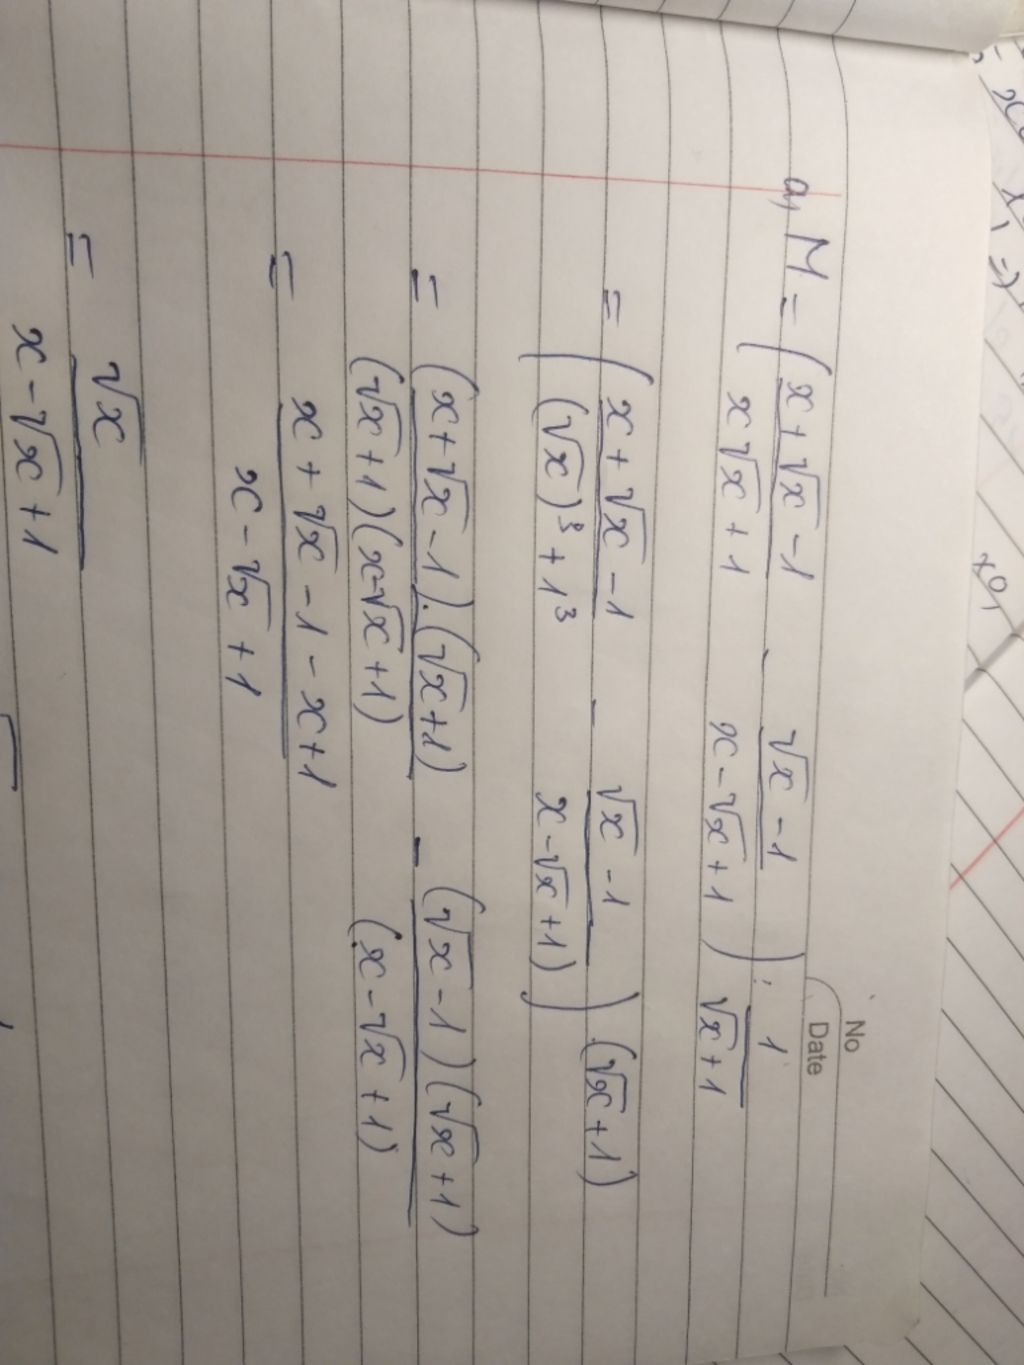 No
Date
a, M = ( (x + √x - 1)/(x√x + 1) - (√x - 1)/(x - √x + 1) ) : 1/(√x + 1)
= ( (x + √x - 1)/((√x)³ + 1³) - (√x - 1)/(x - √x + 1) ) . (√x + 1)
= (x + √x - 1).(√x + 1)/(√x + 1)(x - √x + 1) - (√x - 1)(√x + 1)/(x - √x + 1)
= (x + √x - 1 - x + 1)/(x - √x + 1)
= √x/(x - √x + 1)